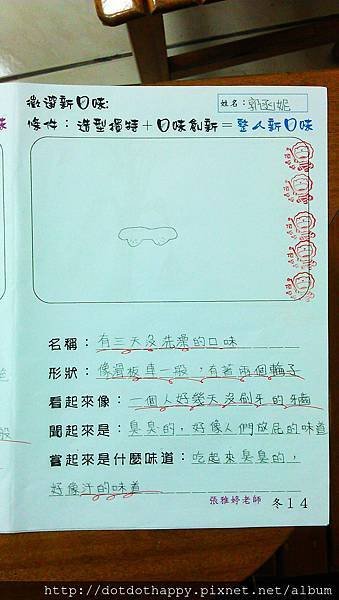 徵選新口味:
姓名：郭丞妮
條件：造型獨特＋口味創新＝整人新口味
名稱：有三天沒洗澡的口味
形狀：像滑板車一般，有著兩個輪子
看起來像：一個人好幾天沒刷牙的牙齒
聞起來是：臭臭的，好像人們放屁的味道
嘗起來是什麼味道：吃起來臭臭的，
好像汗的味道
張雅婷老師
冬14
http://dotdothappy.pixnet.net/album